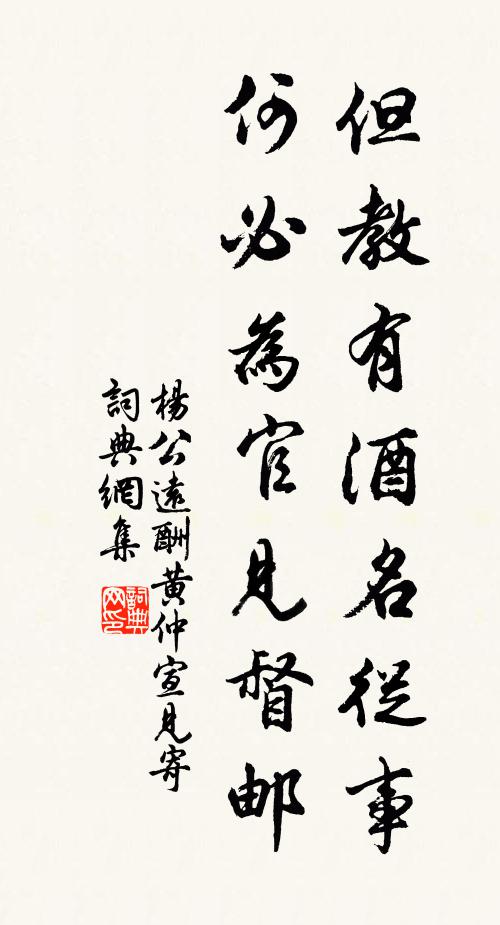 但教有酒名從事
何必為官見督邮
楊公遠酬黃仲宣見寄
詞典網集
詞典网印